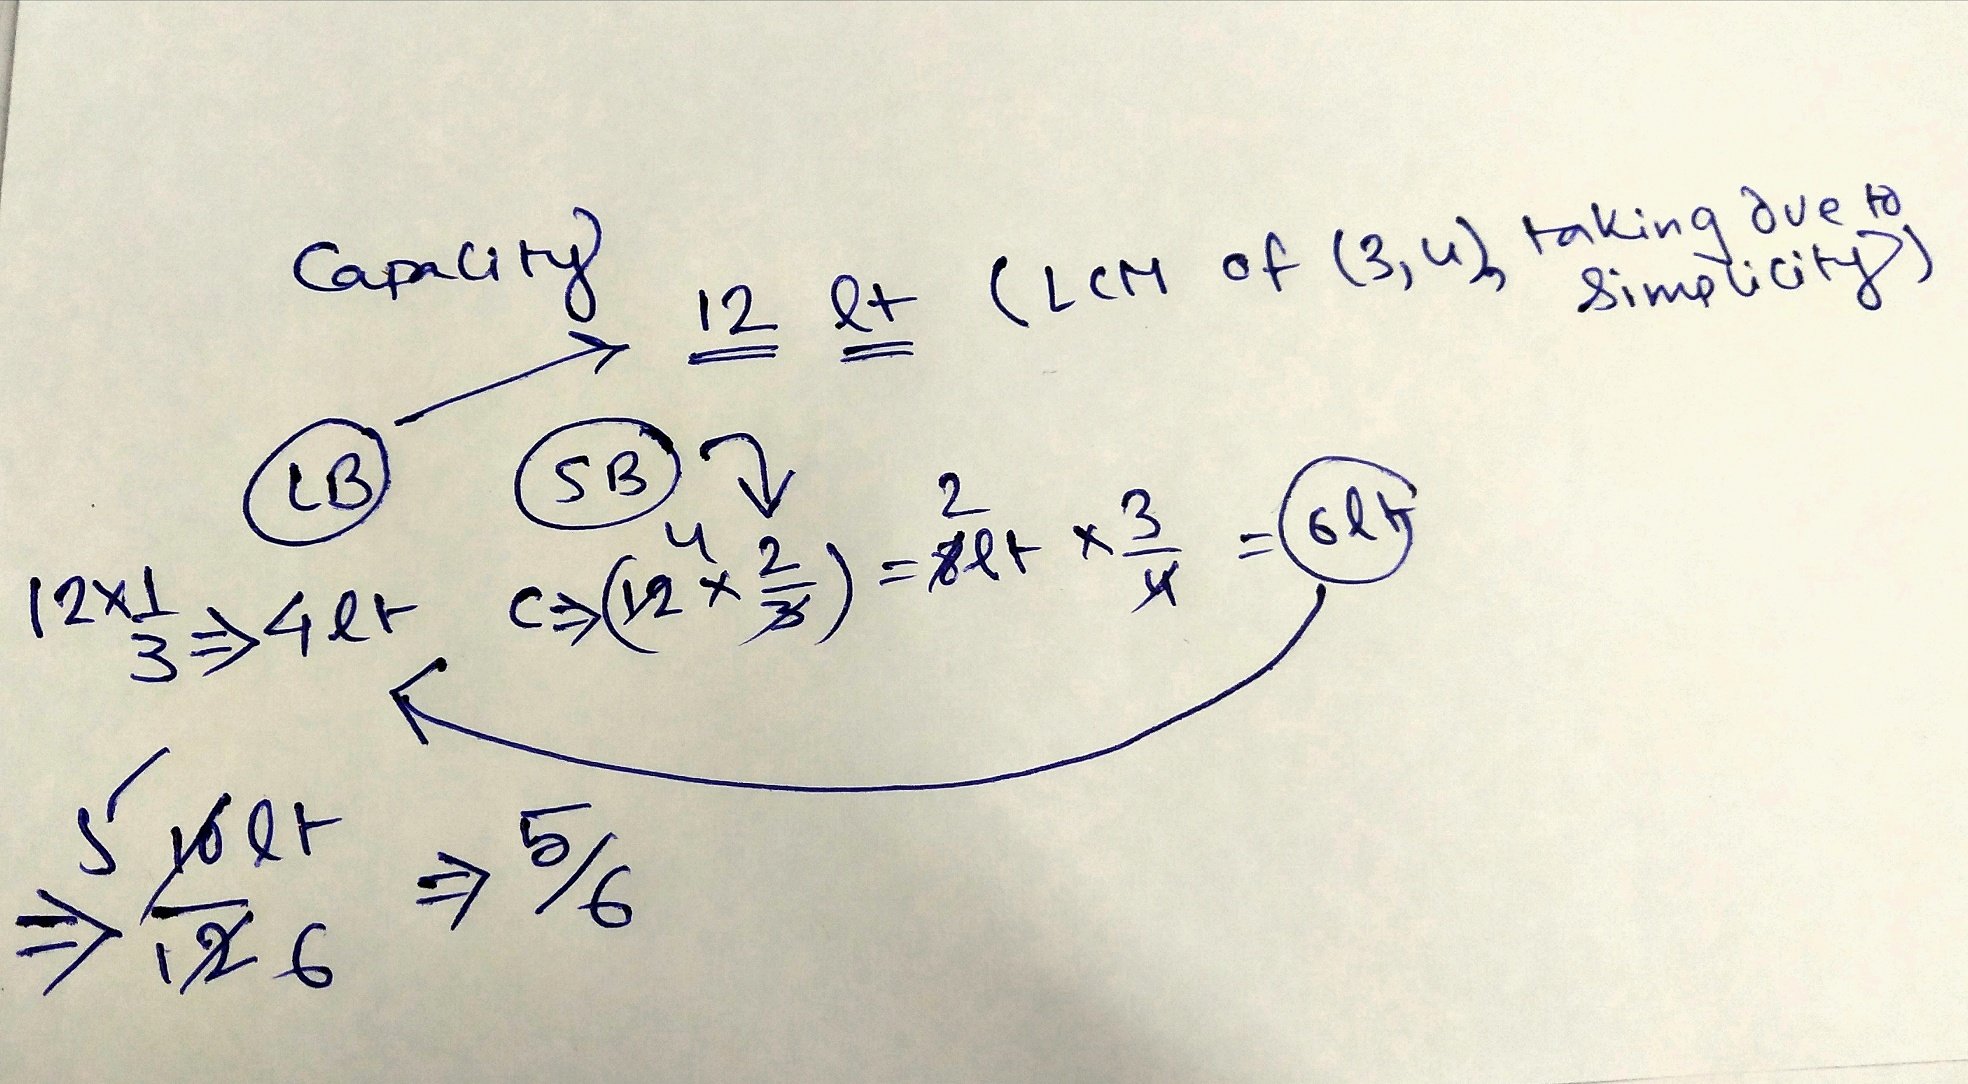 Capacity
12 lt (LCM of (3,4), taking due to
simplicity)
LB SB
12×1/3 ⇒ 4 lt C⇒(12 4 × 2/3) = 8 2 lt × 3/4 = 6 lt
⇒ 5 10 lt/12 6 ⇒ 5/6